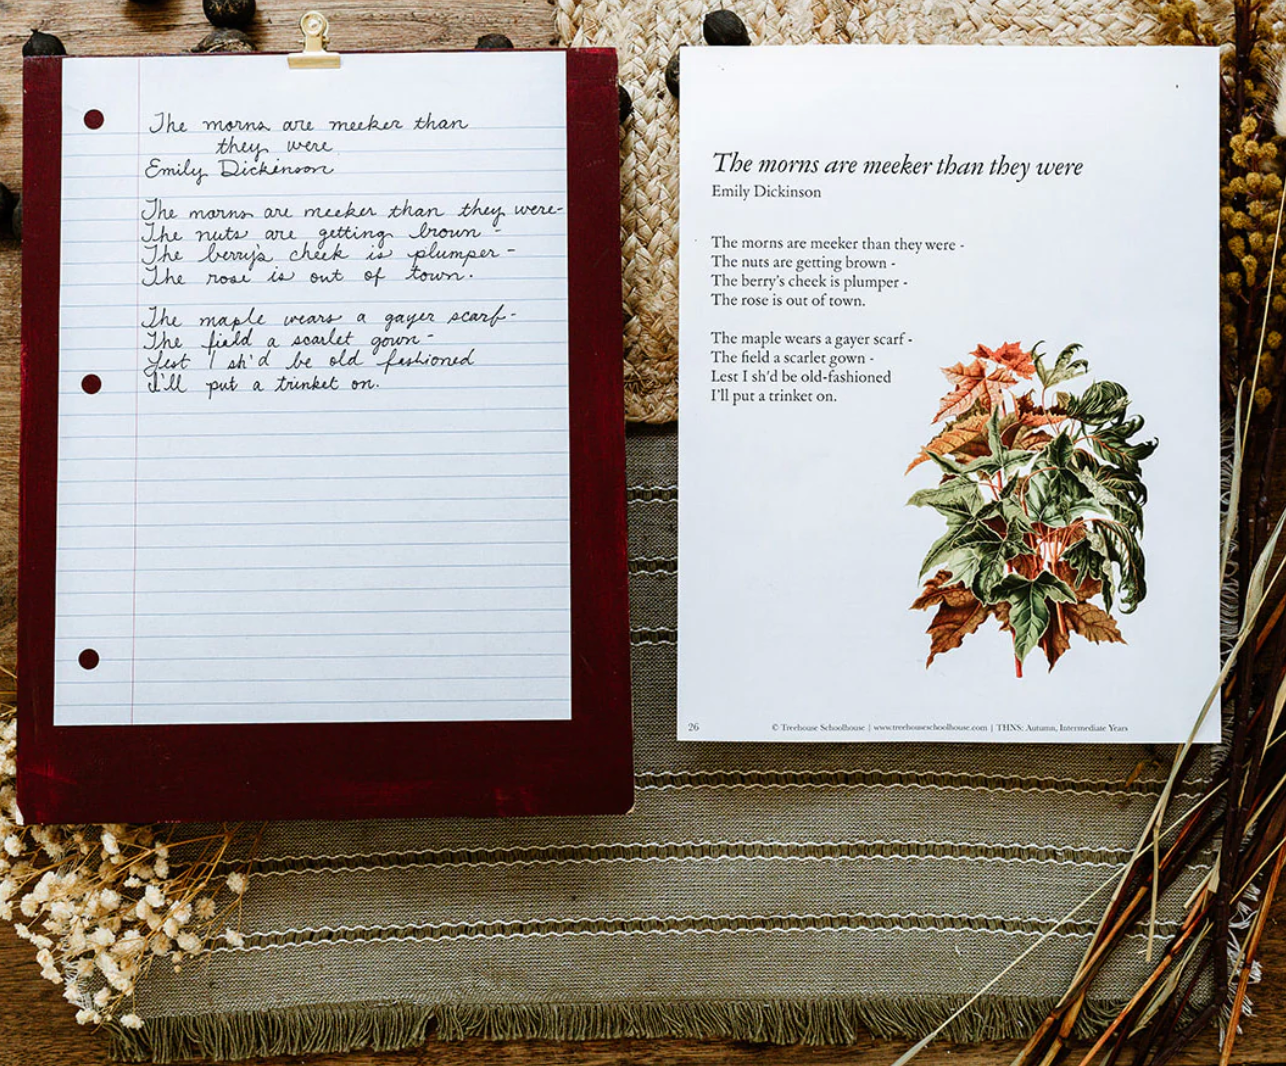 The morns are meeker than
they were
Emily Dickinson
The morns are meeker than they were-
The nuts are getting brown -
The berry's cheek is plumper -
The rose is out of town.
The maple wears a gayer scarf-
The field a scarlet gown -
Lest I sh'd be old fashioned
I'll put a trinket on.
The morns are meeker than they were
Emily Dickinson
The morns are meeker than they were -
The nuts are getting brown -
The berry's cheek is plumper -
The rose is out of town.
The maple wears a gayer scarf -
The field a scarlet gown -
Lest I sh'd be old-fashioned
I'll put a trinket on.
26 © Treehouse Schoolhouse | www.treehouseschoolhouse.com | THNS: Autumn, Intermediate Years